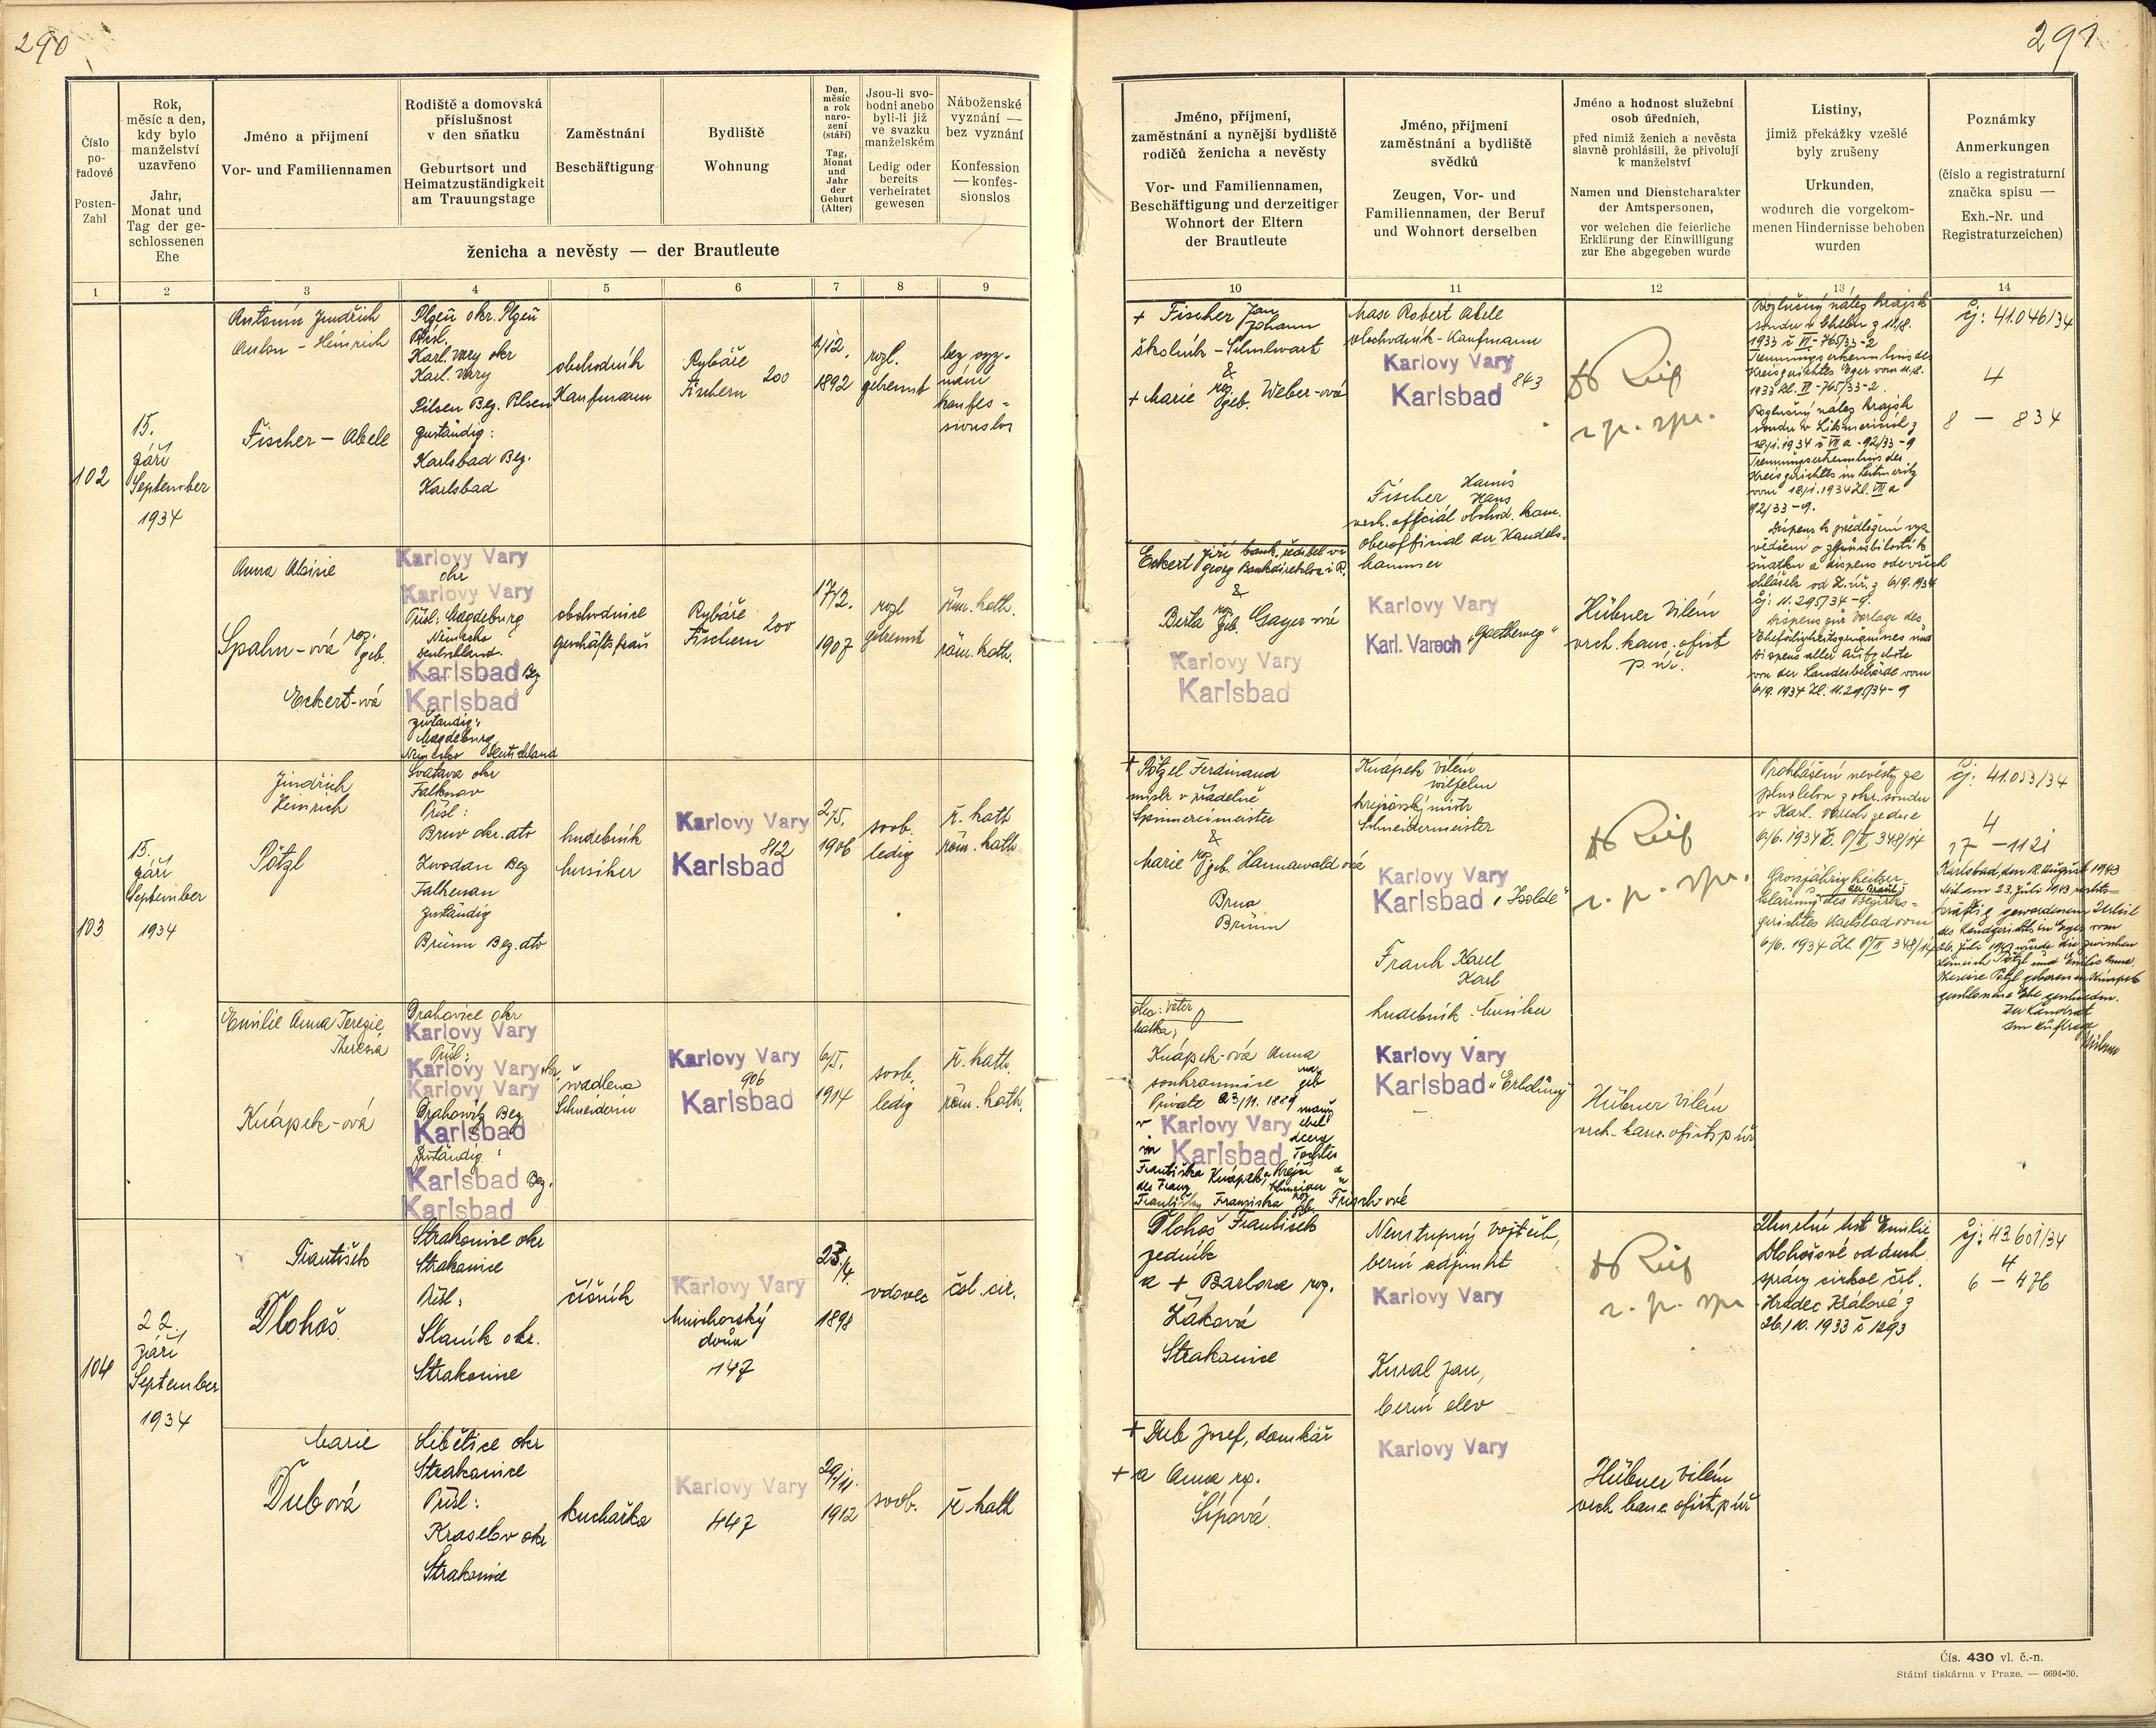 290
Číslo
po-
řadové
Posten-
Zahl
Rok,
měsíc a den,
kdy bylo
manželství
uzavřeno
Jahr,
Monat und
Tag der ge-
schlossenen
Ehe
Jméno a přijmení
Vor- und Familiennamen
Rodiště a domovská
příslušnost
v den sňatku
Geburtsort und
Heimatzuständigkeit
am Trauungstage
Zaměstnání
Beschäftigung
Bydliště
Wohnung
Den,
měsíc
a rok
naro-
zení
(stáří)
Tag,
Monat
und
Jahr
der
Geburt
(Alter)
Jsou-li svo-
bodni anebo
byli-li již
ve svazku
manželském
Ledig oder
bereits
verheiratet
gewesen
Náboženské
vyznání —
bez vyznání
Konfession
— konfes-
sionslos
ženicha a nevěsty — der Brautleute
1 2 3 4 5 6 7 8 9
102
15.
září
September
1934
Antonín Jindřich
Anton - Heinrich
Fischer - Abele
Plzeň okr. Plzeň
Přísl.
Karl. Vary okr
Karl. Vary
Pilsen Bez. Pilsen
zuständig:
Karlsbad Bez.
Karlsbad
obchodník
Kaufmann
Rybáře
Fischern 200
1/12.
1892
rozl.
getrennt
bez vyz-
nání
konfes-
sionslos
Anna Aloisie
Spahn-ová roz.
geb.
Eckert-ová
Karlovy Vary
okr
Karlovy Vary
Přísl: Magdeburg
Německo
Deutschland.
Karlsbad Bez
Karlsbad
zuständig:
Magdeburg
Německo Deutschland
obchodnice
Geschäftsfrau
Rybáře
Fischern 200
17/2.
1907
rozl
getrennt
řím. kath.
röm. kath.
103
15.
září
September
1934
Jindřich
Heinrich
Pötzl
Svatava okr
Falknov
Přísl:
Brno okr. dto
Zwodau Bez
Falkenau
zuständig
Brünn Bez. dto
hudebník
Musiker
Karlovy Vary
812
Karlsbad
2/5.
1906
svob.
ledig
ř. kath
röm. kath
Emilie Anna Terezie
Theresia
Knápek-ová
Drahovice okr
Karlovy Vary
Přísl:
Karlovy Vary okr.
Karlovy Vary
Drahowitz Bez
Karlsbad
Zuständig:
Karlsbad Bez.
Karlsbad
švadlena
Schneiderin
Karlovy Vary
906
Karlsbad
6/5.
1914
svob.
ledig
ř. kath.
röm. kath.
104
22.
září
September
1934
František
Dlohoš
Strakonice okr
Strakonice
Přísl:
Slaník okr.
Strakonice
číšník
Karlovy Vary
Mnichovský
dvůr
147
23/4.
1898
vdovec
čsl. cír.
Marie
Dubová
Libětice okr
Strakonice
Přísl:
Kraselov okr
Strakonice
kuchařka
Karlovy Vary
447
29/11.
1912
svob.
ř. kath
291
Jméno, příjmení,
zaměstnání a nynější bydliště
rodičů ženicha a nevěsty
Vor- und Familiennamen,
Beschäftigung und derzeitiger
Wohnort der Eltern
der Brautleute
Jméno, příjmení
zaměstnání a bydliště
svědků
Zeugen, Vor- und
Familiennamen, der Beruf
und Wohnort derselben
Jméno a hodnost služební
osob úředních,
před nimiž ženich a nevěsta
slavně prohlásili, že přivolují
k manželství
Namen und Dienstcharakter
der Amtspersonen,
vor welchen die feierliche
Erklärung der Einwilligung
zur Ehe abgegeben wurde
Listiny,
jimiž překážky vzešlé
byly zrušeny
Urkunden,
wodurch die vorgekom-
menen Hindernisse behoben
wurden
Poznámky
Anmerkungen
(číslo a registraturní
značka spisu —
Exh.-Nr. und
Registraturzeichen)
10 11 12 13 14
+ Fischer Jan
Johann
školník - Schulwart
&
+ Marie roz. geb. Weber-ová
Max Robert Abele
obchodník - Kaufmann
Karlovy Vary
843
Karlsbad
Fischer Hanuš
Hans
vrch. oficiál obchod. kom.
Oberoffizial der Handels-
kammer
Karlovy Vary
Karl. Varech „Goetheweg“
Rozlučný nález krajsk
soudu v Chebu z 11/8.
1933 č VI-765/33-2
Trennungserkenntnis des
Kreisgerichtes Eger vom 11/8.
1933 Zl. VI-765/33-2.
Rozlučný nález krajsk
soudu v Litoměřicích z
18/1.1934 č VII a-92/33-9
Trennungserkenntnis des
Kreisgerichtes in Leitmeritz
vom 18/1.1934 Zl. VII a
92/33-9.
Dispens k předložení vys
vědčení o způsobilosti k
sňatku a dispens ode všech
ohlášek od Z.úř. z 6/9.1934
čj: 11.295/34-9.
Dispens zur Vorlage des
Ehefähigkeitszeugnisses und
Dispens aller Aufgebote
von der Landesbehörde vom
6/9.1934 Zl. 11.295/34-9
čj: 41.046/34
4
8 - 834
Eckert Jiří bank. ředitel v.v.
Georg Bankdirektor i.R.
&
Berta roz. geb. Gayer-ová
Karlovy Vary
Karlsbad
Hübner Vilém
vrch. kanc. ofic.
+ Pötzel Ferdinand
mistr v přádelně
Spinnereimeister
&
Marie roz. geb. Hannawald ová
Brno
Brünn
Knápek Vilém
Wilhelm
krejčovský mistr
Schneidermeister
Karlovy Vary
Karlsbad, „Isolde“
Frank Karel
Karl
hudebník - Musiker
Karlovy Vary
Karlsbad „Erldüng“
Prohlášení nevěsty za
plnoletou z okr. soudu
v Karl. Varech ze dne
6/6. 1934 Zl. P/II 348/14
Grossjährigkeitser-
der Braut
klärung des Bezirks-
gerichtes Karlsbad vom
6/6. 1934 Zl. P/II 348/14
čj: 41.053/34
4
17 - 1121
Karlsbad, den 18. August 1943
Mit am 23. Juli 1943 rechts-
kräftig gewordenem Urteil
des Landgerichts in Eger vom
26. Juli 1943 wurde die zwischen
Heinrich Pötzl und Emilie Anna
Theresia Pötzl geborenen Knapek
geschlossene Ehe geschieden.
Der Landrat
Im Auftrage
otec: Vater
matka;
Knápek-ová Anna
soukromnice
Private 23/11. 1889
v Karlovy Vary
in Karlsbad Tochter
Františka Knápek, krejčí a
des Franz Schneider u
Františky Franziska geb. Frischové
Hübner Vilém
vrch. kanc. ofic.
Dlohoš František
zedník
a + Barbora roz.
Žáková
Strakonice
Neustupný Vojtěch,
berní adjunkt
Karlovy Vary
Kural Jan,
berní elev
Karlovy Vary
Úmrtní list Emilie
Dlohošové od duch.
správy církve čsl.
Hradec Králové z
26/10. 1933 č 1293
čj: 43.601/34
4
6 - 476
+ Dub Josef, domkář
+ a Anna roz.
Šípová.
Hübner Vilém
vrch. kanc. ofic.
Čís. 430 vl. č.-n.
Státní tiskárna v Praze. — 6694-30.